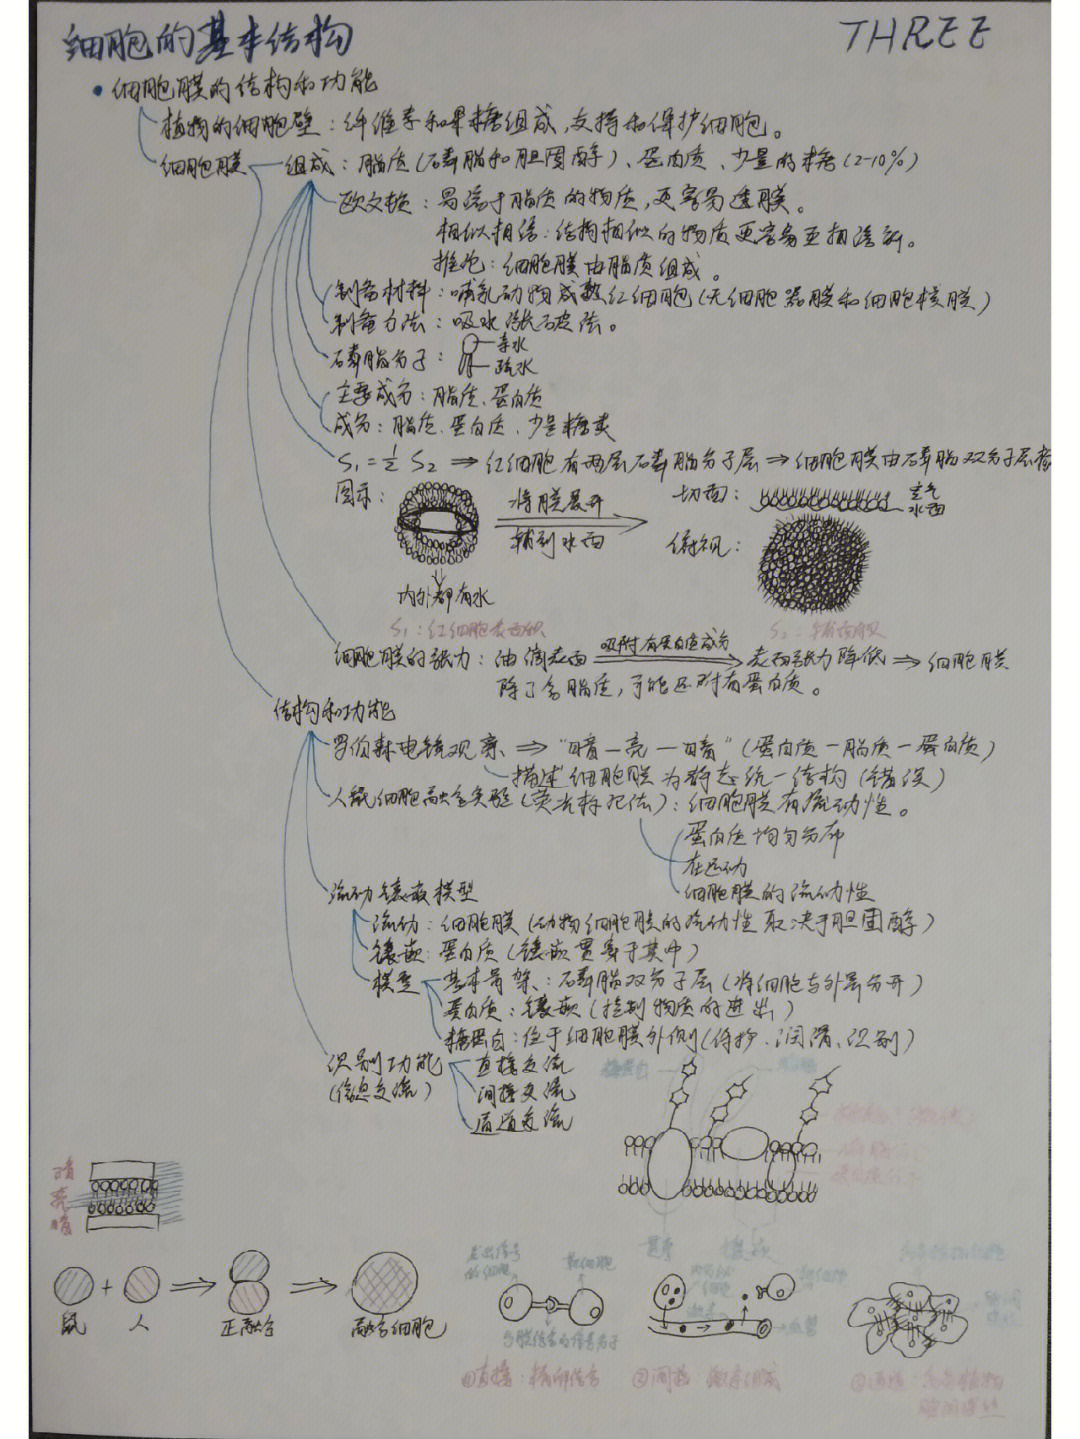 细胞的基本结构
THREE
• 细胞膜的结构和功能
植物的细胞壁：纤维素和果糖组成，支持和保护细胞。
细胞膜 — 组成：脂质（磷脂和胆固醇）、蛋白质、少量的糖（2-10%）
欧文顿：易溶于脂质的物质，更容易透膜。
相似相溶：结构相似的物质更容易互相溶解。
推论：细胞膜由脂质组成。
制备材料：哺乳动物成熟红细胞（无细胞器膜和细胞核膜）
制备方法：吸水涨破法。
磷脂分子：
亲水
疏水
主要成分：脂质、蛋白质
成分：脂质、蛋白质、少量糖类
S₁=½ S₂ ⇒ 红细胞有两层磷脂分子层 ⇒ 细胞膜由磷脂双分子层
图示：
将膜展开
铺到水面
切面：
空气
水面
俯视：
内外都有水
S₁：红细胞表面积
S₂：铺面积
细胞膜的张力：油滴表面 吸附有蛋白质成分 表面张力降低 ⇒ 细胞膜
除了含脂质，可能还附有蛋白质。
结构和功能
罗伯森电镜观察 ⇒ "暗—亮—暗"（蛋白质—脂质—蛋白质）
描述细胞膜为静态统一结构（错误）
人鼠细胞融合实验（荧光标记法）：细胞膜有流动性。
蛋白质均匀分布
在运动
细胞膜的流动性
流动镶嵌模型
流动：细胞膜（动物细胞膜的流动性取决于胆固醇）
镶嵌：蛋白质（镶嵌贯穿于其中）
模型
基本骨架：磷脂双分子层（将细胞与外界分开）
蛋白质：镶嵌（控制物质的进出）
糖蛋白：位于细胞膜外侧（保护、润滑、识别）
识别功能
（信息交流）
直接交流
间接交流
通道交流
糖蛋白
暗
亮
暗
鼠 + 人 ⇒ 正融合 ⇒ 融合细胞
发出信号
的细胞
靶细胞
内分泌
细胞
激素
靶细胞
血管
①直接：精卵结合
②间接